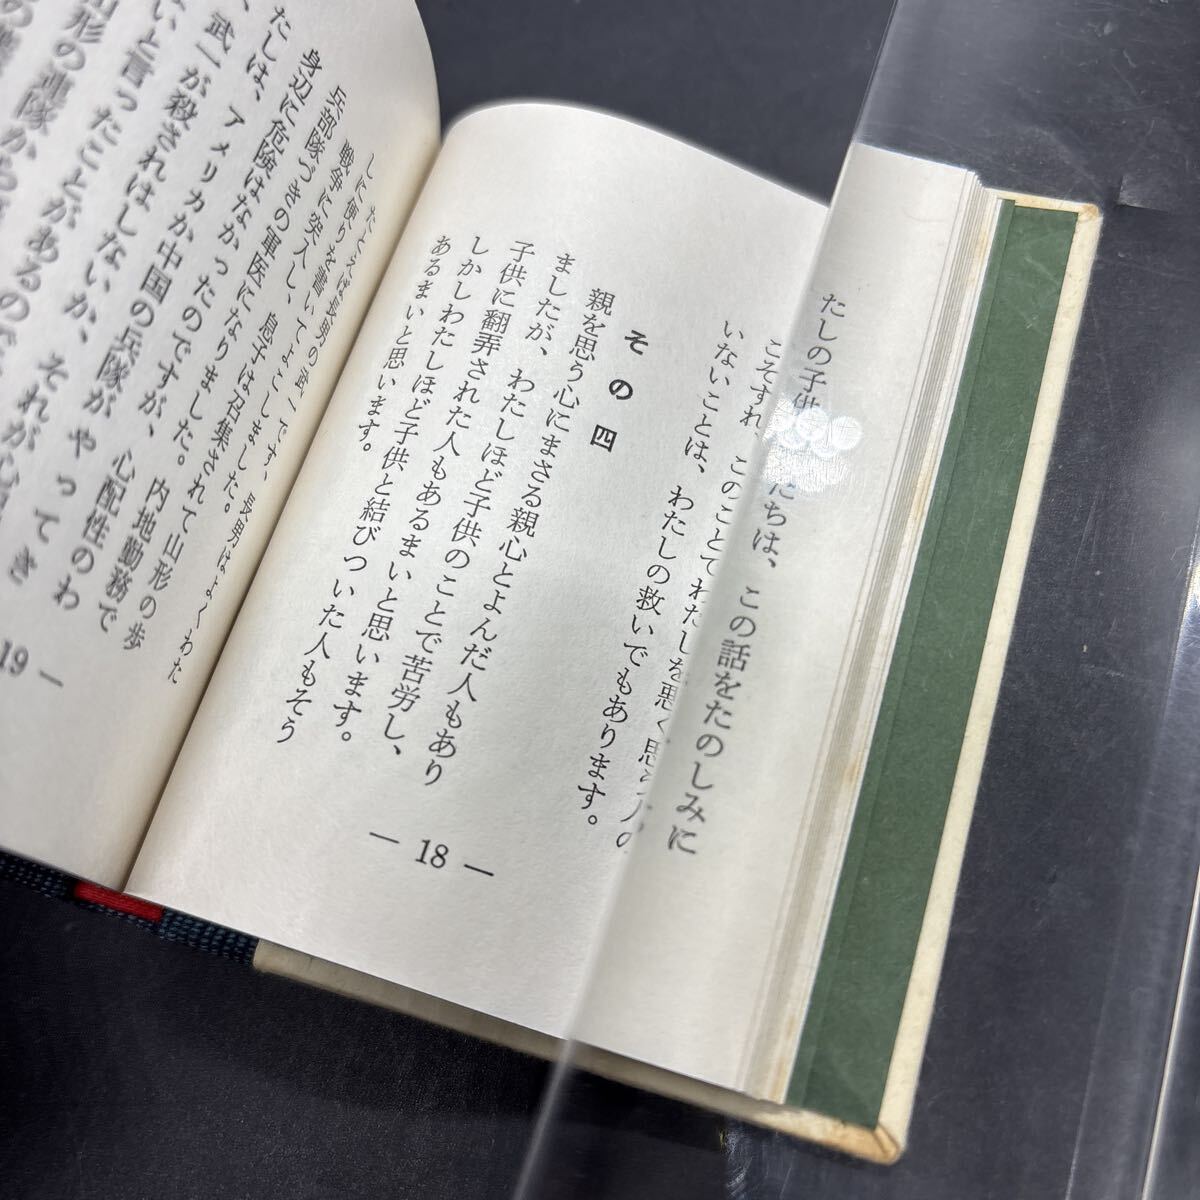 たしの子供たちは、この話をたのしみに
こそすれ、このことでわたしを悪く思う人の
いないことは、わたしの救いでもあります。
その四
親を思う心にまさる親心とよんだ人もあり
ましたが、わたしほど子供のことで苦労し、
子供に翻弄された人もあるまいと思います。
しかしわたしほど子供と結びついた人もそう
あるまいと思います。
— 18 —
たとえば長男の武一です、長男はよくわた
しに便りを書いてよこしました。
戦争に突入し、息子は召集されて山形の歩
兵部隊づきの軍医になりました。内地勤務で
身辺に危険はなかったのですが、心配性のわ
たしは、アメリカか中国の兵隊がやってき
、武一が殺されはしないか、それが心
ないと言ったことがあるので
山形の連隊から
19 —